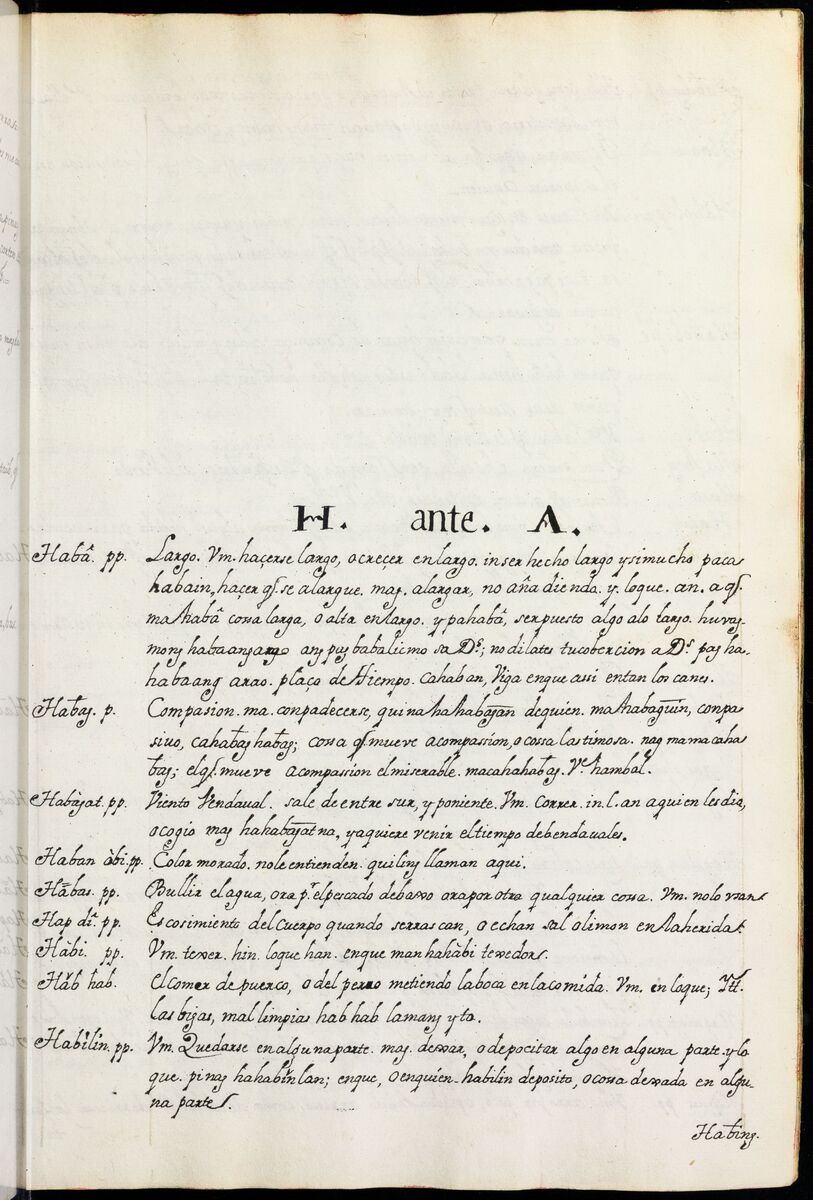 H. ante. A.
Habâ. pp. Largo. Vm. haçerse largo, o creçer en largo. in ser hecho largo y si mucho paca
habain, haçer qe. se alargue. mag. alargar, no añadienda. y. loque. an. a qe.
mahabâ cossa larga, o alta en largo. ypahabâ, ser puesto algo alo largo. huvag
mong habaang arao ang pag babalic mo sa Ds; no dilates tu cobercion a Ds pag ha-
habaang arao. plaço de tiempo. cahaban, Viga en que assi entan los canes.
Habag. p. Compasion. ma. conpadecerse, quinahahabagan de quien. mahabaguin, conpa
siuo, cahabag habag; cossa qe mueve a compassion, o cossa lastimosa. nag mamacaha
bag; el qe. mueve a compassion el miserable. macahahabag. Ve. hambal.
Habàgat. pp. Viento Vendaval. sale de entre sur, y poniente. Vm. correr. in. l. an a quien les dia,
o cogio mag hahabagat na, ya quiere venir el tiempo de bendauales.
Haban àbi. pp. Color morado. no le entienden. quiling llaman aqui.
Hābas. pp. Bullir el agua, ora pr. el pescado debaxo ora por otra qualquier cossa. Vm. no lo vsan
Hap di. pp. Escosimiento del cuerpo quando se rrascan, o echan sal o limon en la herida.
Hàbi. pp. Vm. texer. hin. loque han. en que man hahàbi texedor.
Hăb hab. El comer de puerco, o del perro metiendo la boca en la comida. Vm. en loque; Itt.
las bigas, mal limpias hab hab lamang yto.
Habilin. pp. Vm. Quedarse en alguna parte. mag. dexar, o depocitar algo en alguna parte. y lo
que. pinag hahabinlan; enque, o enquien habilin deposito, o cossa dexada en algu-
na parte.
Habing.